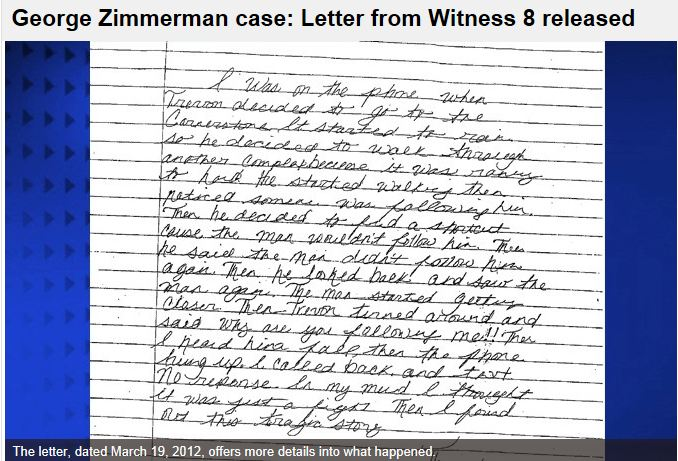 George Zimmerman case: Letter from Witness 8 released
I Was on the phone when
Trevon decided to go to the
Cornerstore. It started to rain
so he decided to walk through
another complex because it was raining
to hard. He started walking then
noticed someone was following him.
Then he decided to find a shortcut
cause the man wouldn't follow him. Then
he said the man didn't follow him
again. Then he looked back and saw the
man again. The man started getting
closer. Then Trevon turned around and
said why are you following me!! Then
I heard him fall, then the phone
hung up. I called back and text
No response. In my mind I thought
it was just a fight. Then I found
out this tragic story
The letter, dated March 19, 2012, offers more details into what happened.